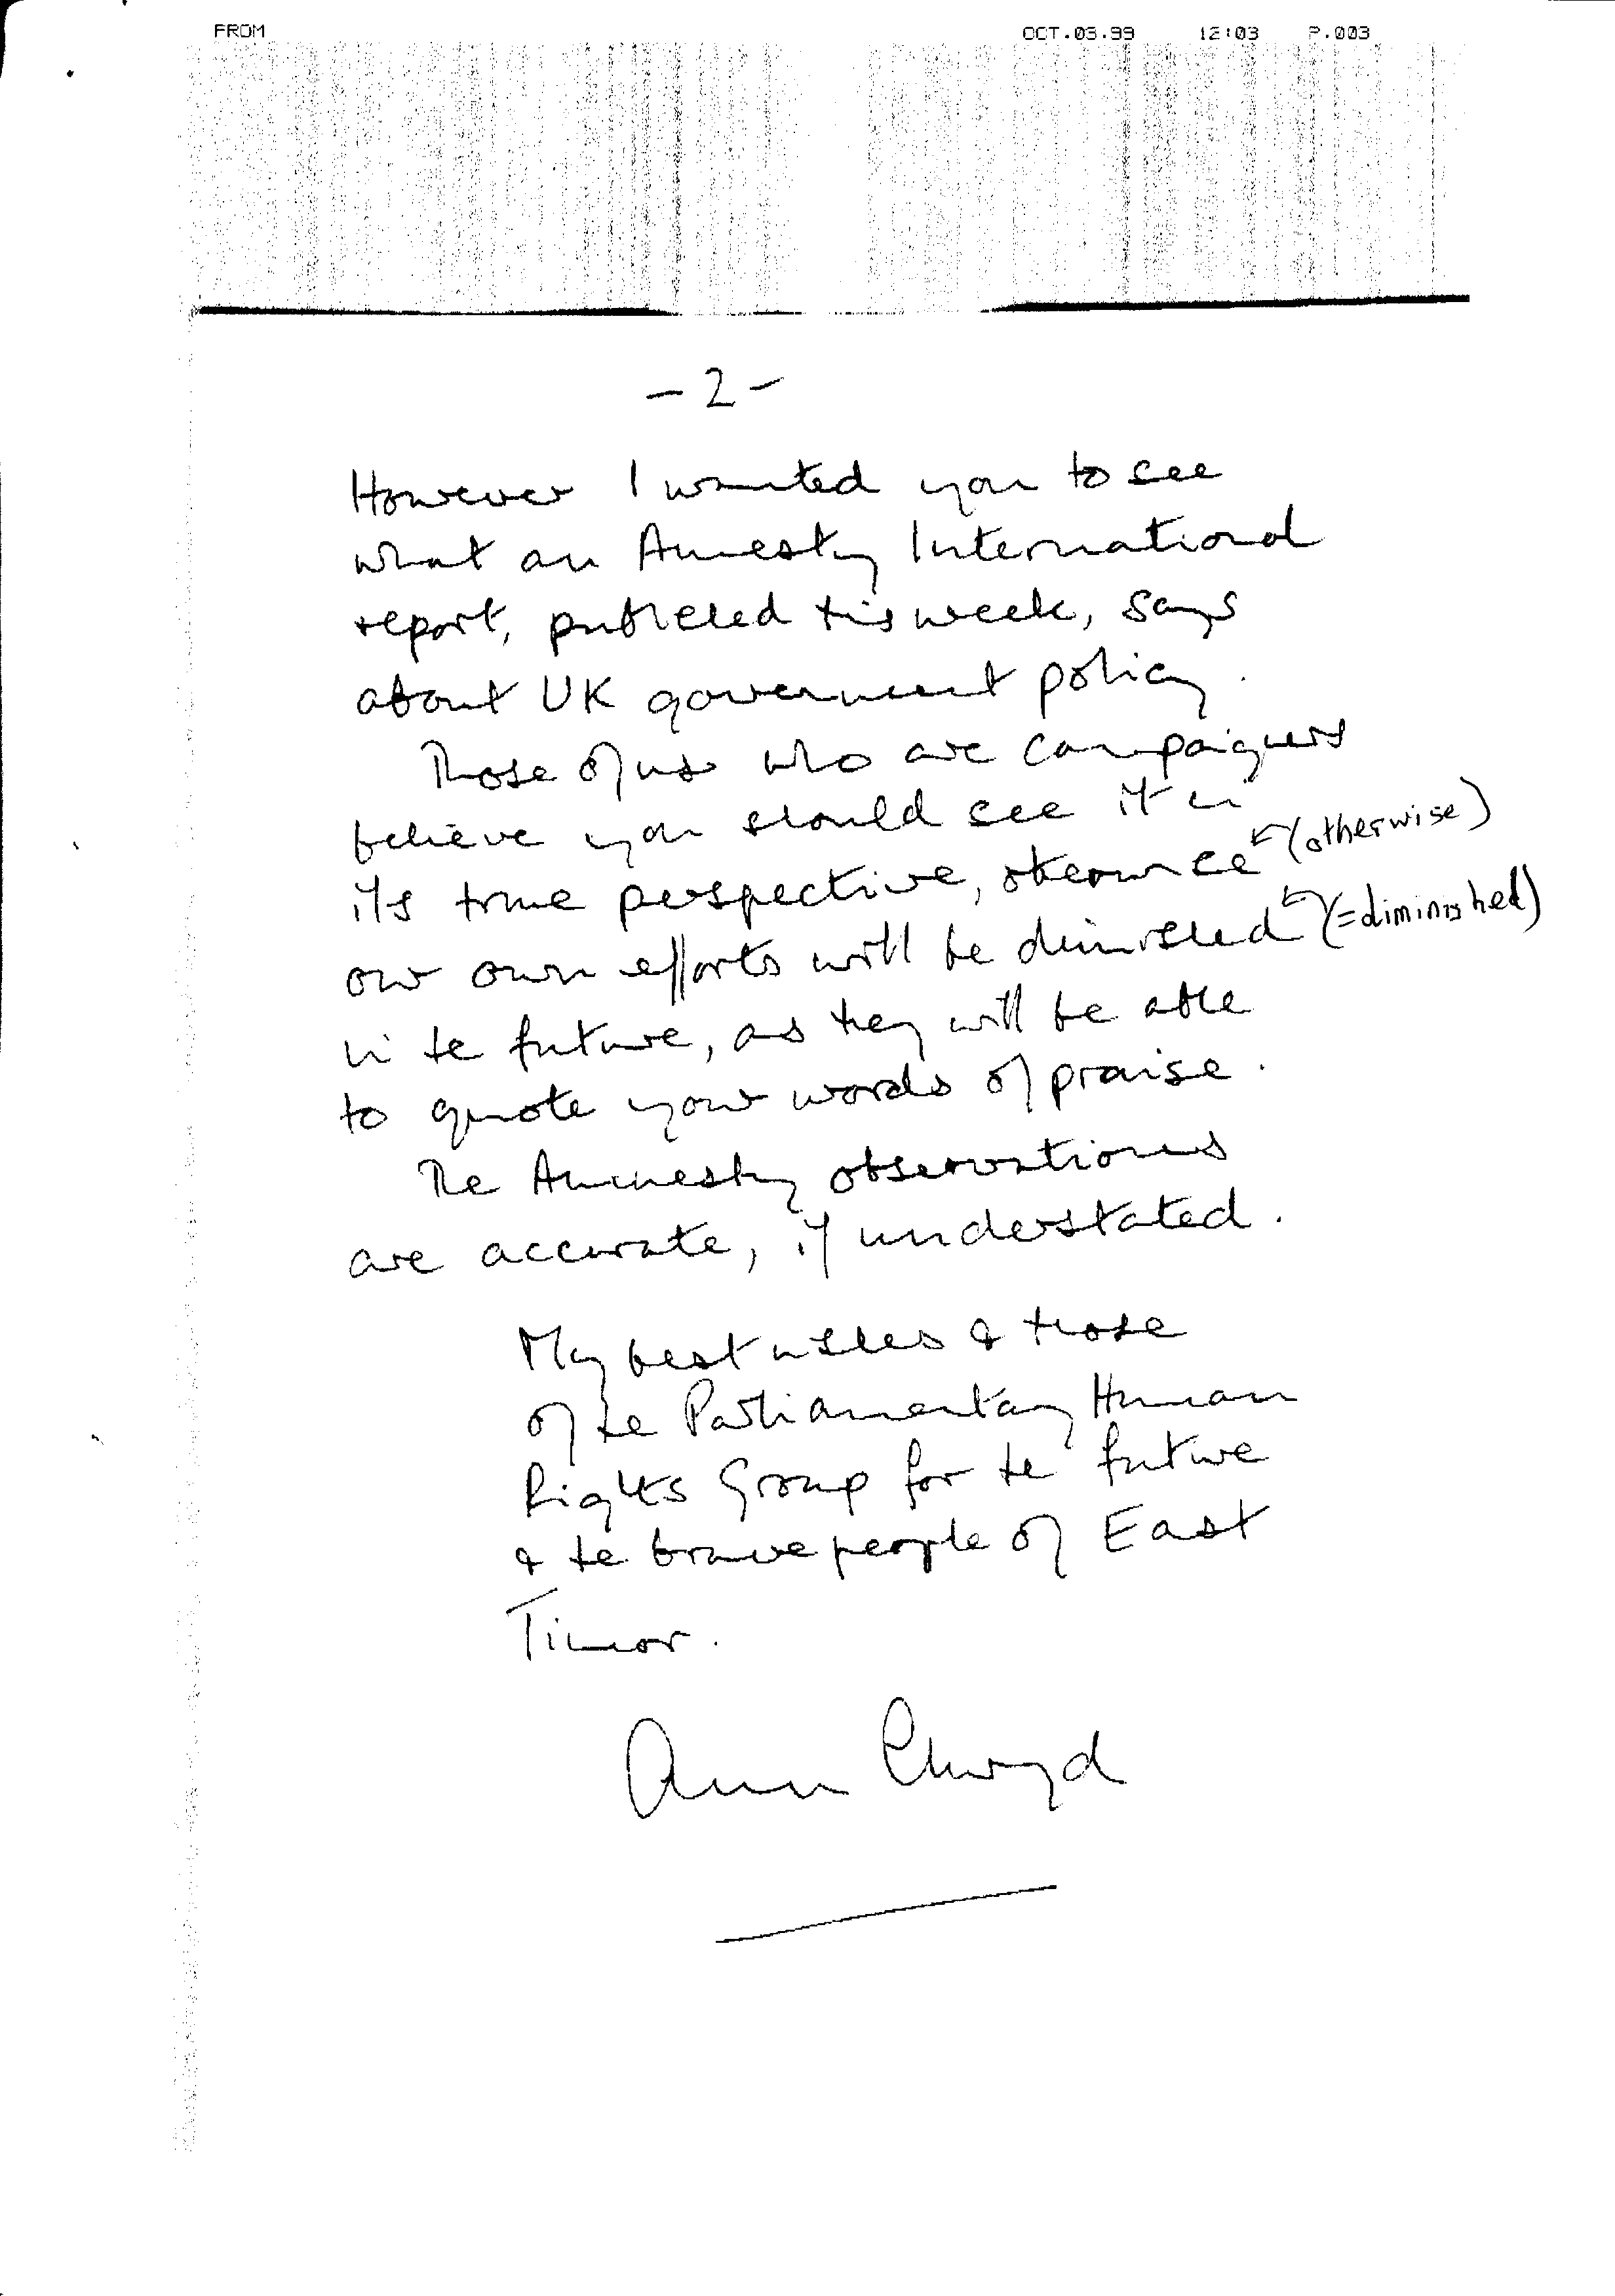 FROM OCT.03.99 12:03 P.003
- 2 -
However I wanted you to see
what an Amnesty International
report, published this week, says
about UK government policy.
Those of us who are campaigners
believe you should see it in
its true perspective, otherwise (otherwise)
our own efforts will be diminished (=diminished)
in the future, as they will be able
to quote your words of praise.
The Amnesty observations
are accurate, if understated.
My best wishes & those
of the Parliamentary Human
Rights Group for the future
& the brave people of East
Timor.
Ann Clwyd